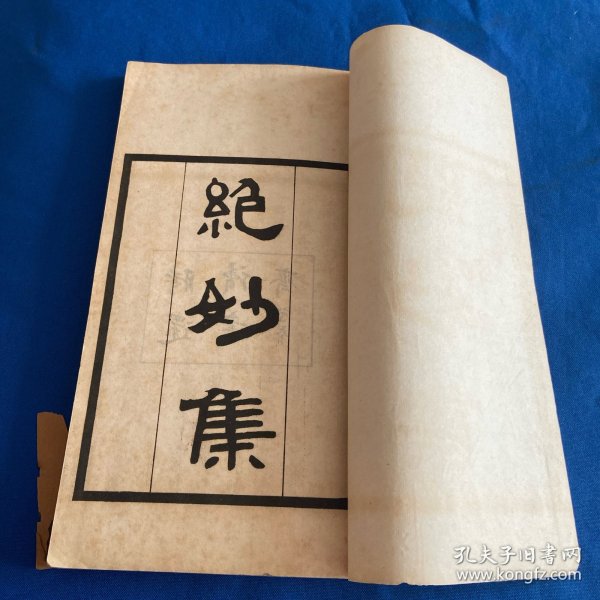 絕妙集
孔夫子旧书网
www.kongfz.com